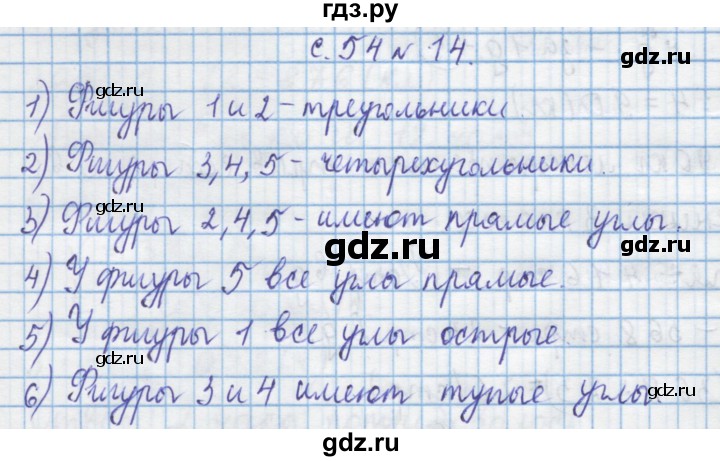 гдз.ру
с. 54 № 14.
gdz.ru gdz.ru
1) Фигуры 1 и 2 - треугольники.
2) Фигуры 3, 4, 5 - четырехугольники.
gdz.ru gdz.ru
3) Фигуры 2, 4, 5 - имеют прямые углы.
gdz.ru
4) У фигуры 5 все углы прямые.
5) У фигуры 1 все углы острые.
gdz.ru gdz.ru
6) Фигуры 3 и 4 имеют тупые углы.
gdz.ru